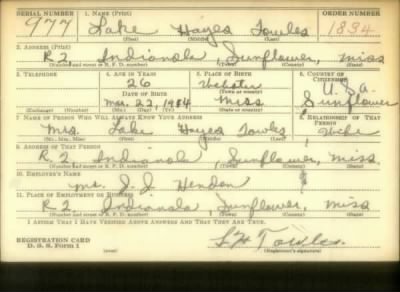 SERIAL NUMBER 1. NAME (Print) ORDER NUMBER
977 Lake Hayes Towles 1834
(First) (Middle) (Last)
2. ADDRESS (Print)
R 2 Indianola Sunflower, Miss
(Number and street or R. F. D. number) (Town) (County) (State)
3. TELEPHONE 4. AGE IN YEARS 5. PLACE OF BIRTH 6. COUNTRY OF CITIZENSHIP
26 Webster U.S.a.
DATE OF BIRTH (Town or county) Sunflower
Mar. 22, 1914 Miss
(Exchange) (Number) (Mo.) (Day) (Yr.) (State or country)
7. NAME OF PERSON WHO WILL ALWAYS KNOW YOUR ADDRESS 8. RELATIONSHIP OF THAT PERSON
Mrs. Lake Hayes Towles Wife
(Mr., Mrs., Miss) (First) (Middle) (Last)
9. ADDRESS OF THAT PERSON
R. 2. Indianola Sunflower, Miss
(Number and street or R. F. D. number) (Town) (County) (State)
10. EMPLOYER'S NAME
mr. Hendon
11. PLACE OF EMPLOYMENT OR BUSINESS
R 2. Indianola, Sunflower, Miss
(Number and street or R. F. D. number) (Town) (County) (State)
I AFFIRM THAT I HAVE VERIFIED ABOVE ANSWERS AND THAT THEY ARE TRUE.
REGISTRATION CARD L H Towles
D. S. S. Form 1 (Registrant's signature)